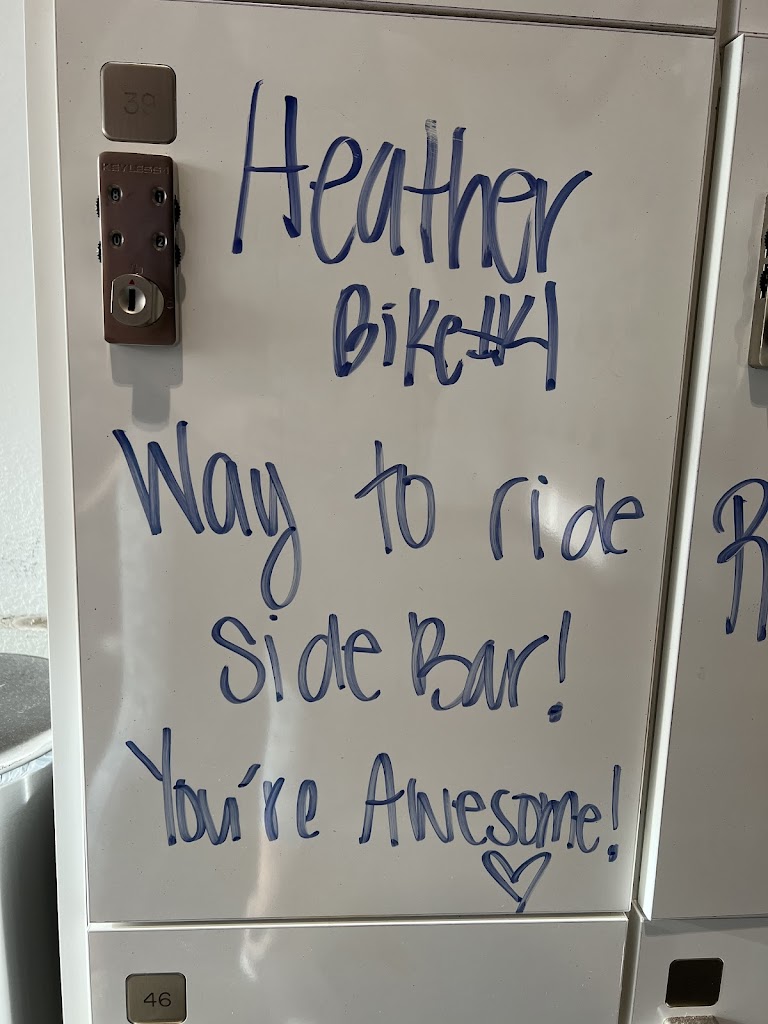 39
KEYLESS
Heather
Bike #1
Way to ride
side Bar!
You're Awesome!
46